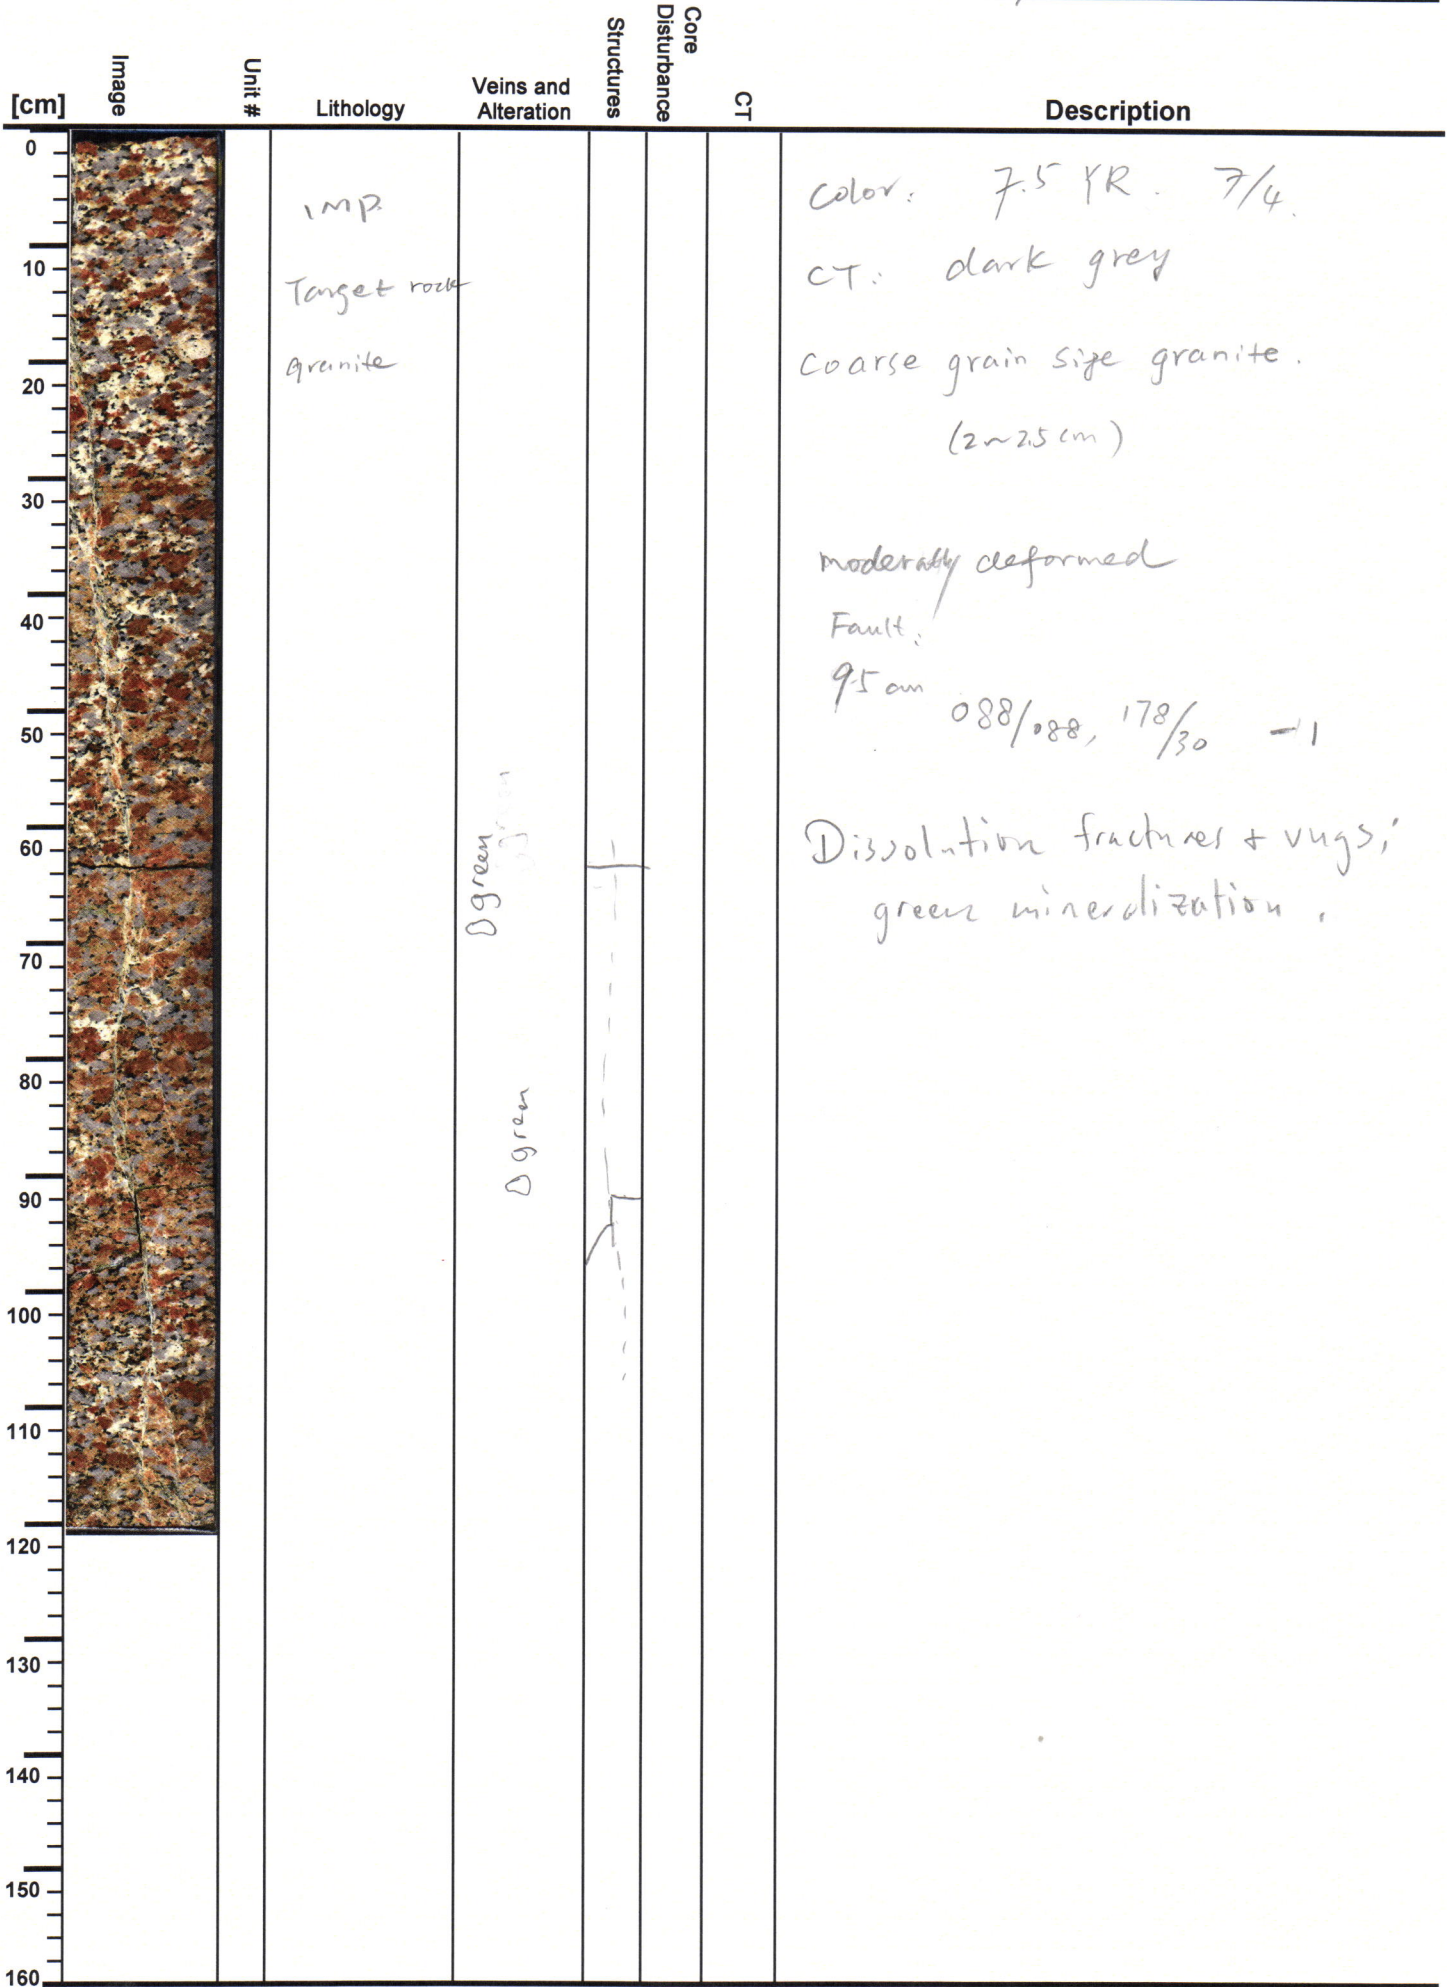 [cm]
Image
Unit #
Lithology
Veins and
Alteration
Structures
Core
Disturbance
CT
Description
0
10
20
30
40
50
60
70
80
90
100
110
120
130
140
150
160
IMP.
Target rock
granite
green
green
Color: 7.5 YR. 7/4.
CT: dark grey
Coarse grain size granite.
(2~2.5 cm)
moderately deformed
Fault:
95 cm
088/088, 178/30 -1
Dissolution fractures + vugs;
green mineralization.